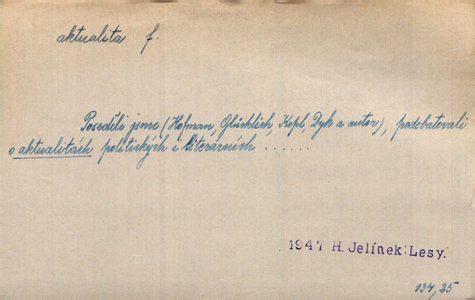 aktualita f.
Poseděli jsme (Hofman, Glücklich, Kepl, Dyk a autor), podebatovali
o aktualitách politických i literárních . . . . . .
1947 H. Jelínek: Lesy.
134, 25